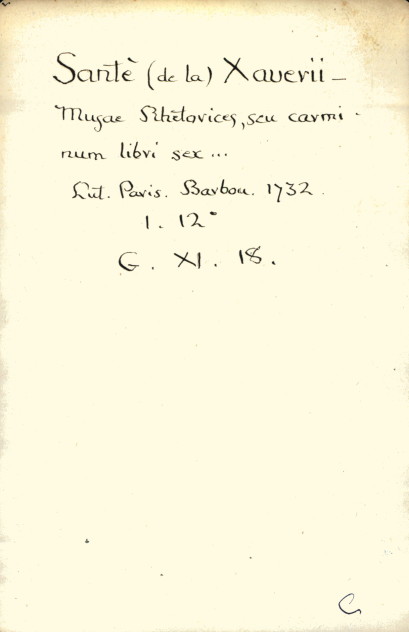 Santè (de la) Xaverii –
Musae Rhetorices, seu carmi-
num libri sex...
Lut. Paris. Barbou. 1732.
1. 12°
G. XI. 18.
C